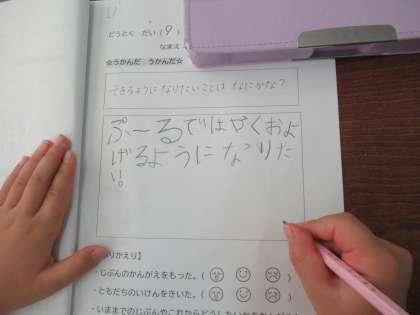 どうとく　だい(9)
なまえ
☆うかんだ　うかんだ☆
できるようになりたいことは なにかな?
ぷーるではやくおよ
げるようになりた
い。
りかえり】
・じぶんのかんがえをもった。(
・ともだちのいけんをきいた。(
・いままでのじぶんやこれからどうしたいかをかんがえ